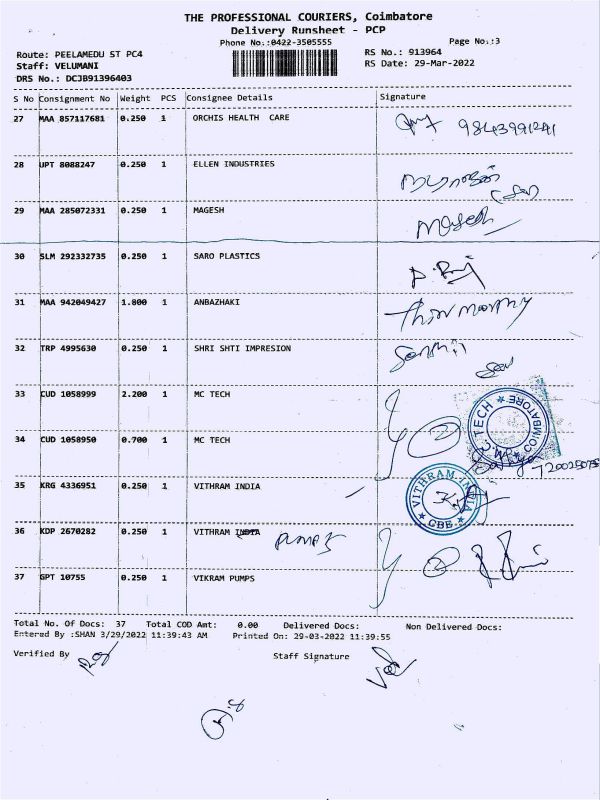 THE PROFESSIONAL COURIERS, Coimbatore
Delivery Runsheet - PCP
Phone No.:0422-3505555 Page No.:3
Route: PEELAMEDU ST PC4 RS No.: 913964
Staff: VELUMANI RS Date: 29-Mar-2022
DRS No.: DCJB91396403
S No Consignment No Weight PCS Consignee Details Signature
27 MAA 857117681 0.250 1 ORCHIS HEALTH CARE
28 UPT 8088247 0.250 1 ELLEN INDUSTRIES
29 MAA 285072331 0.250 1 MAGESH Magesh
30 SLM 292332735 0.250 1 SARO PLASTICS
31 MAA 942049427 1.800 1 ANBAZHAKI
32 TRP 4995630 0.250 1 SHRI SHTI IMPRESION
33 CUD 1058999 2.200 1 MC TECH
M.C. TECH COIMBATORE
34 CUD 1058950 0.700 1 MC TECH
35 KRG 4336951 0.250 1 VITHRAM INDIA
VITHRAM INDIA CBE
36 KDP 2670282 0.250 1 VITHRAM INDIA
37 GPT 10755 0.250 1 VIKRAM PUMPS
Total No. Of Docs: 37 Total COD Amt: 0.00 Delivered Docs: Non Delivered Docs:
Entered By :SHAN 3/29/2022 11:39:43 AM Printed On: 29-03-2022 11:39:55
Verified By Staff Signature